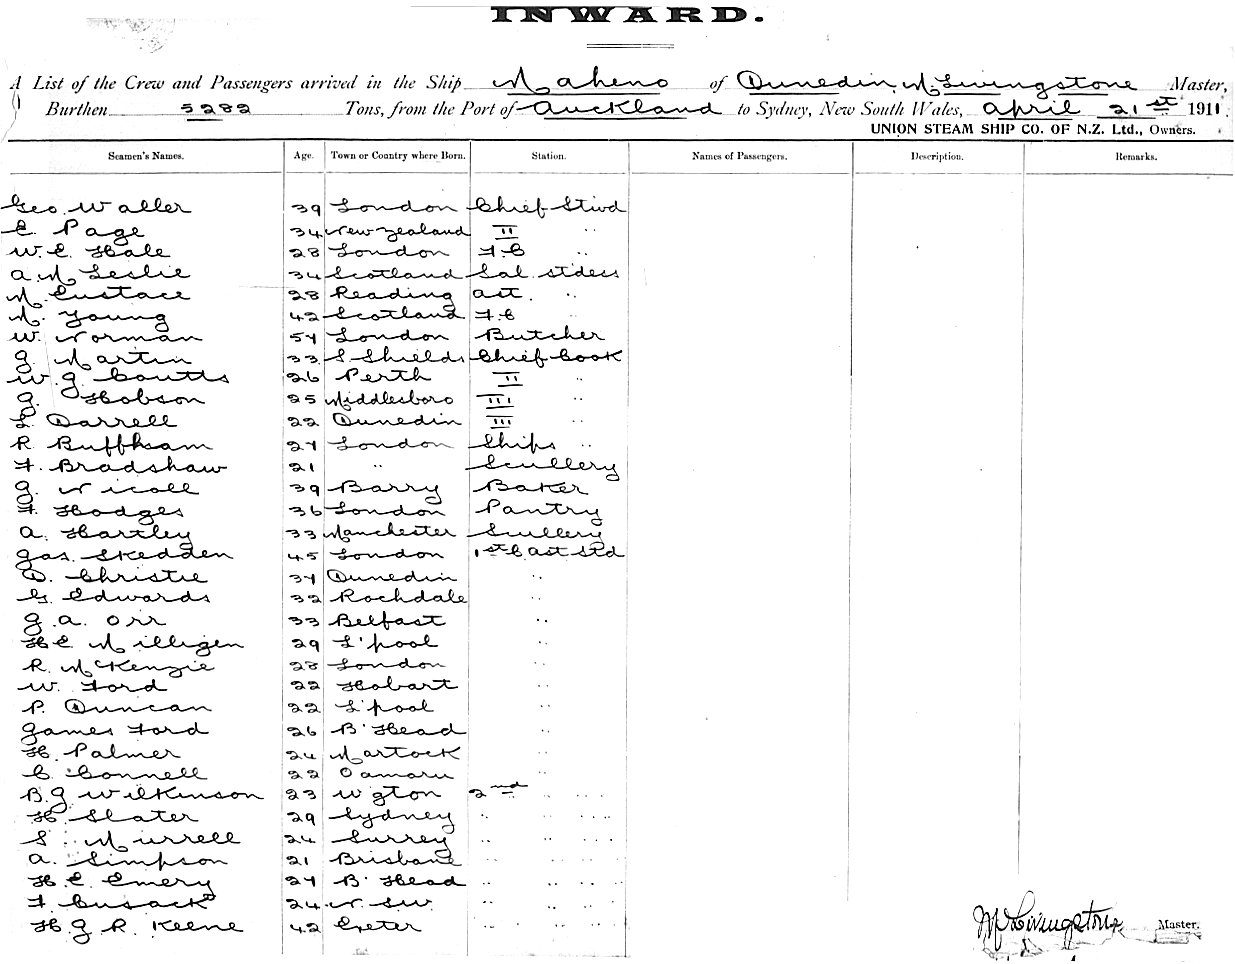 INWARD.
A List of the Crew and Passengers arrived in the Ship Maheno of Dunedin, M Livingstone Master,
Burthen 5282 Tons, from the Port of Auckland to Sydney, New South Wales, April 21st 1911.
UNION STEAM SHIP CO. OF N.Z. Ltd., Owners.
Seamen's Names. Age. Town or Country where Born. Station. Names of Passengers. Description. Remarks.
Geo. Waller 39 London Chief Stwd
E. Page 34 New Zealand II "
W. E. Hale 28 London F.C "
A. M. Leslie 34 Scotland Sal. Stdess
M. Eustace 28 Reading ast. "
M. Young 42 Scotland F.C
W. Norman 54 London Butcher
J. Martin 33 S Shields Chief Cook
W. J. Coutts 26 Perth II "
J. Hobson 25 Middlesboro III "
L. Darrell 22 Dunedin III "
R. Buffham 27 London Ships "
F. Bradshaw 21 " Scullery
J. Nicoll 39 Barry Baker
F. Hodges 36 London Pantry
A. Hartley 33 Manchester Scullery
Jas. Skedden 45 London 1st C. ast. Std
D. Christie 37 Dunedin "
G. Edwards 32 Rochdale "
J. A. Orr 33 Belfast "
H E Milligen 29 L'pool "
R. McKenzie 28 London "
W. Ford 22 Hobart "
P. Duncan 22 L'pool "
James Ford 26 B'Head "
H. Palmer 24 Martock "
C. Connell 22 Oamaru "
B. J Wilkinson 23 W'gton 2nd " "
H. Slater 29 Sydney " " "
S. Murrell 24 Surrey " " "
A. Simpson 21 Brisbane " " "
H. E. Emery 27 B'Head " " "
F. Cusack 24 N. S.W. " " "
H. J. R. Keene 42 Exeter " " "
M Livingstone Master.